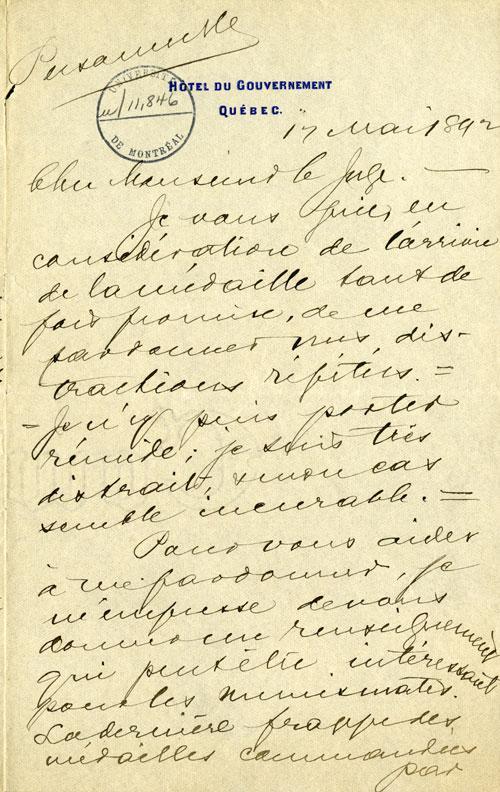 Personnelle
UNIVERSITÉ
u/11,846
DE MONTRÉAL
HÔTEL DU GOUVERNEMENT
QUÉBEC.
17 Mai 1892
Cher Monsieur le Juge. —
Je vous prie, en
considération de l'arrivée
de la médaille tant de
fois promise, de me
pardonner mes dis-
tractions répétées. =
= Je n'y puis porter
remède; je suis très
distrait, & mon cas
semble incurable. =
Pour vous aider
à me pardonner, je
m'empresse de vous
donner un renseignement
qui peut être intéressant
pour les numismates.
La dernière frappe des
médailles commandées
par